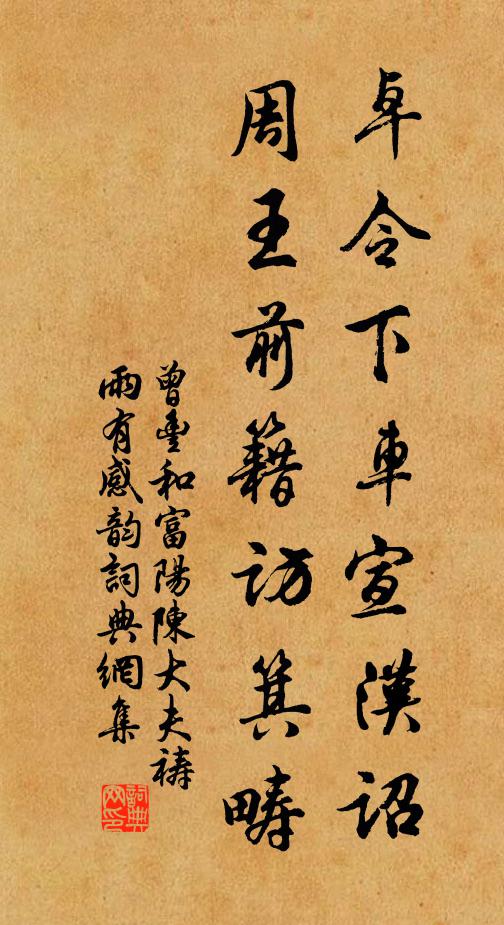 卓令下車宣漢詔
周王前籍訪箕疇
曾豐和富陽陳大夫禱
雨有感韵詞典網集
詞典網印